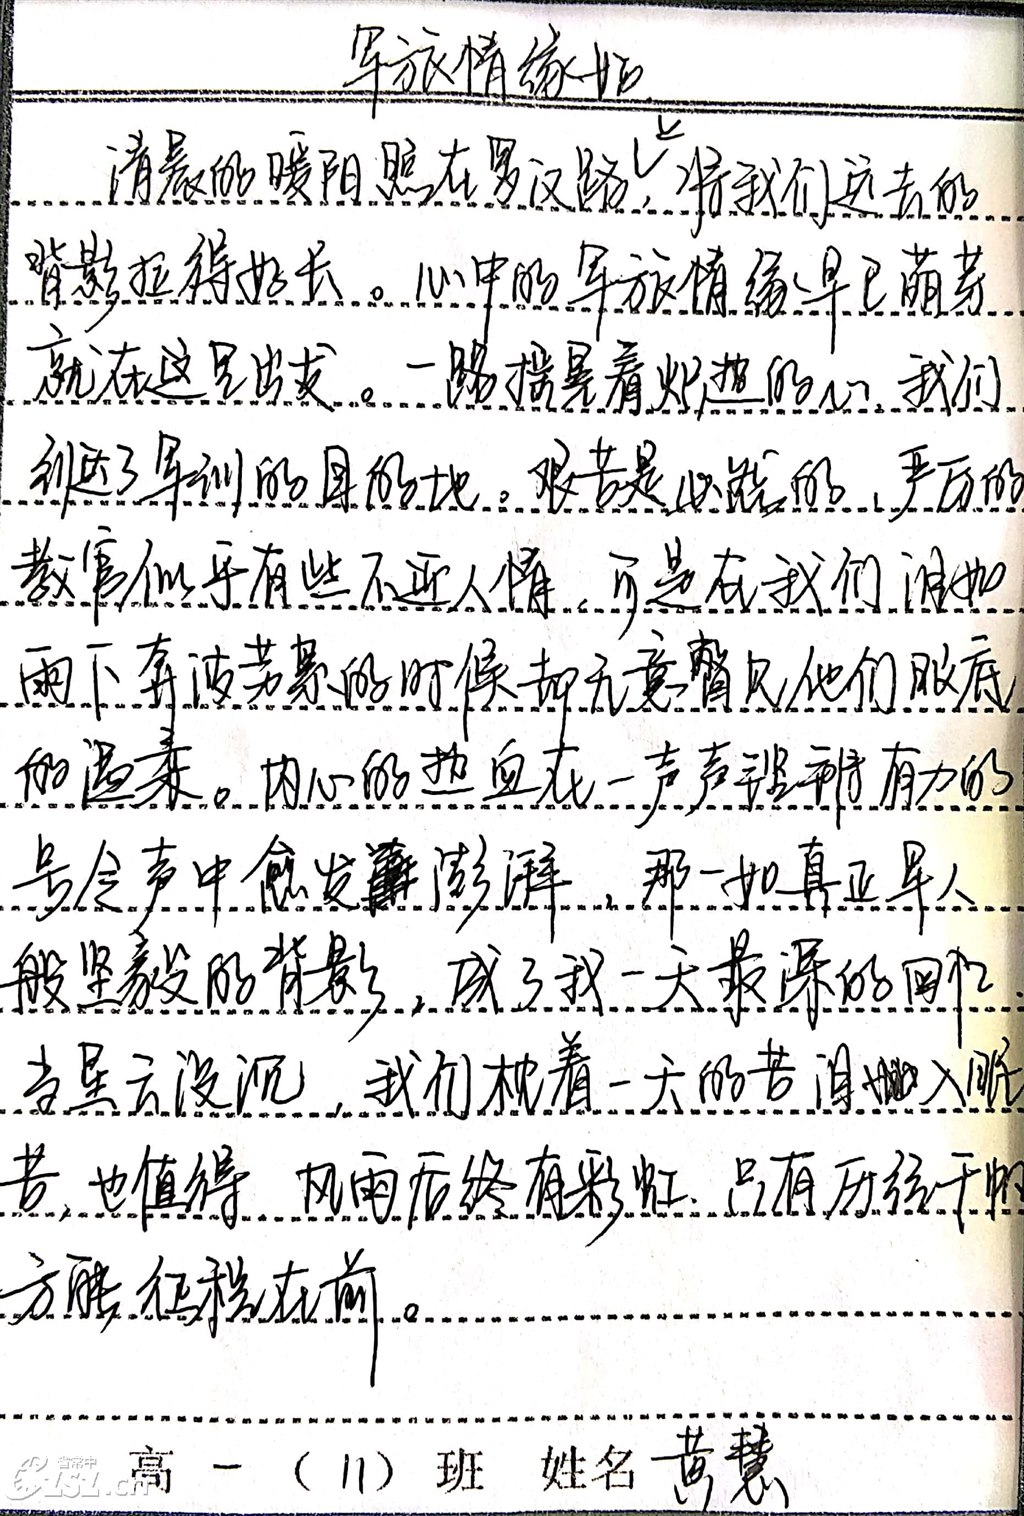 军旅情缘始
清晨的暖阳照在罗汉路,将我们远去的
背影拉得好长。心中的军旅情缘早已萌芽
就在这里出发。一路揣着炽热的心,我们
到达了军训的目的地。艰苦是必然的,严厉的
教官似乎有些不近人情,可是在我们泪如
雨下奔波劳累的时候却无意瞥见他们眼底
的温柔。内心的热血在一声声铿锵有力的
号令声中愈发澎湃,那一如真正军人
般坚毅的背影,成了我一天最深的回忆
当星云没沉,我们枕着一天的苦入眠
苦,也值得 风雨后终有彩虹,只有历经千帆
方能征程在前。
高一(11)班 姓名 黄慧
省常中